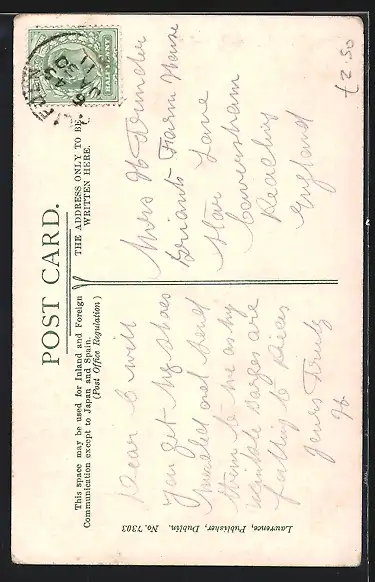 POST CARD.
This space may be used for Inland and Foreign
Communication except to Japan and Spain.
(Post Office Regulation)
THE ADDRESS ONLY TO BE
WRITTEN HERE.
HALFPENNY
£2.50
Dear C will
you get my shoes
and send
them to me as my
are
falling to pieces
yours truly
H
Mrs H
Briants Farm House
Star Lane
Caversham
Reading
England
Lawrence, Publisher, Dublin. No. 7303